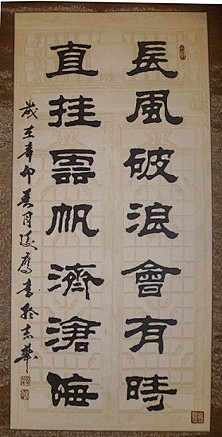 長風破浪會有時
直挂雲帆濟滄海
歲在辛卯月書於